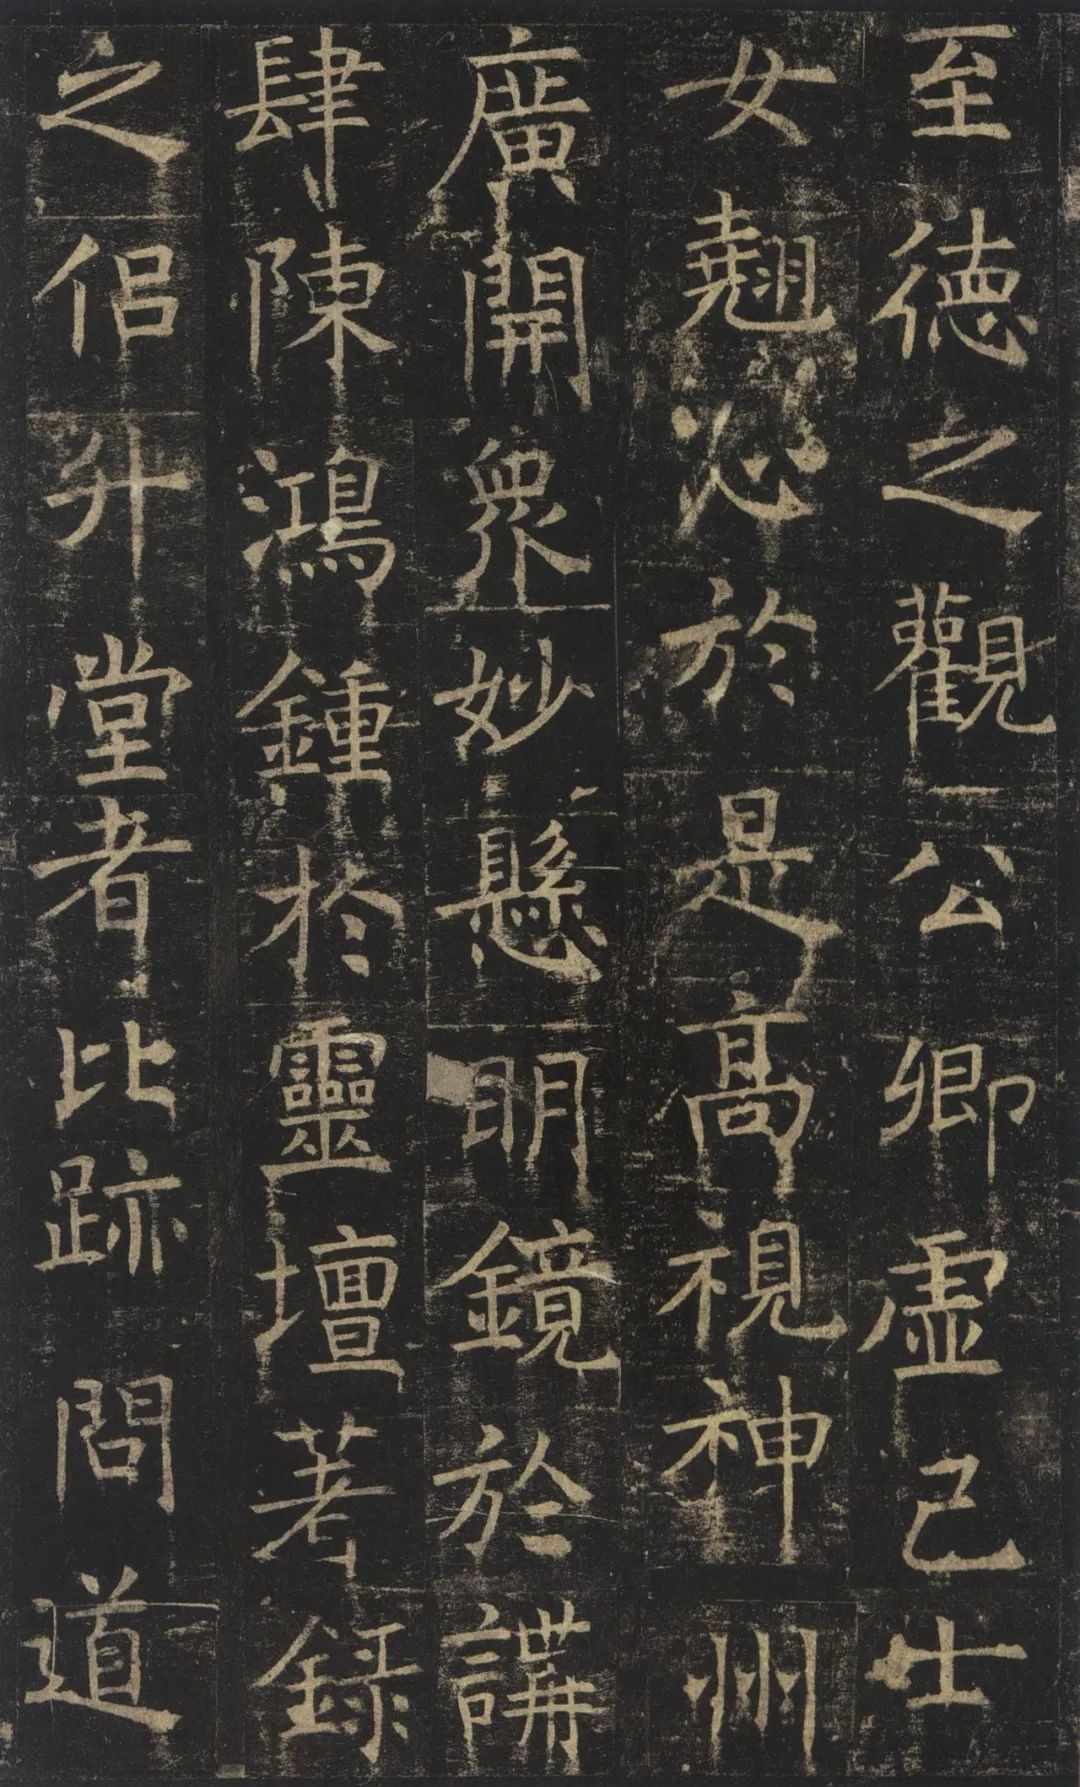 至徳之觀公卿虚己士
女翹心於是髙視神州
廣開眾妙懸明鏡於講
肆陳鴻鍾扵靈壇著錄
之侶升堂者比跡問道